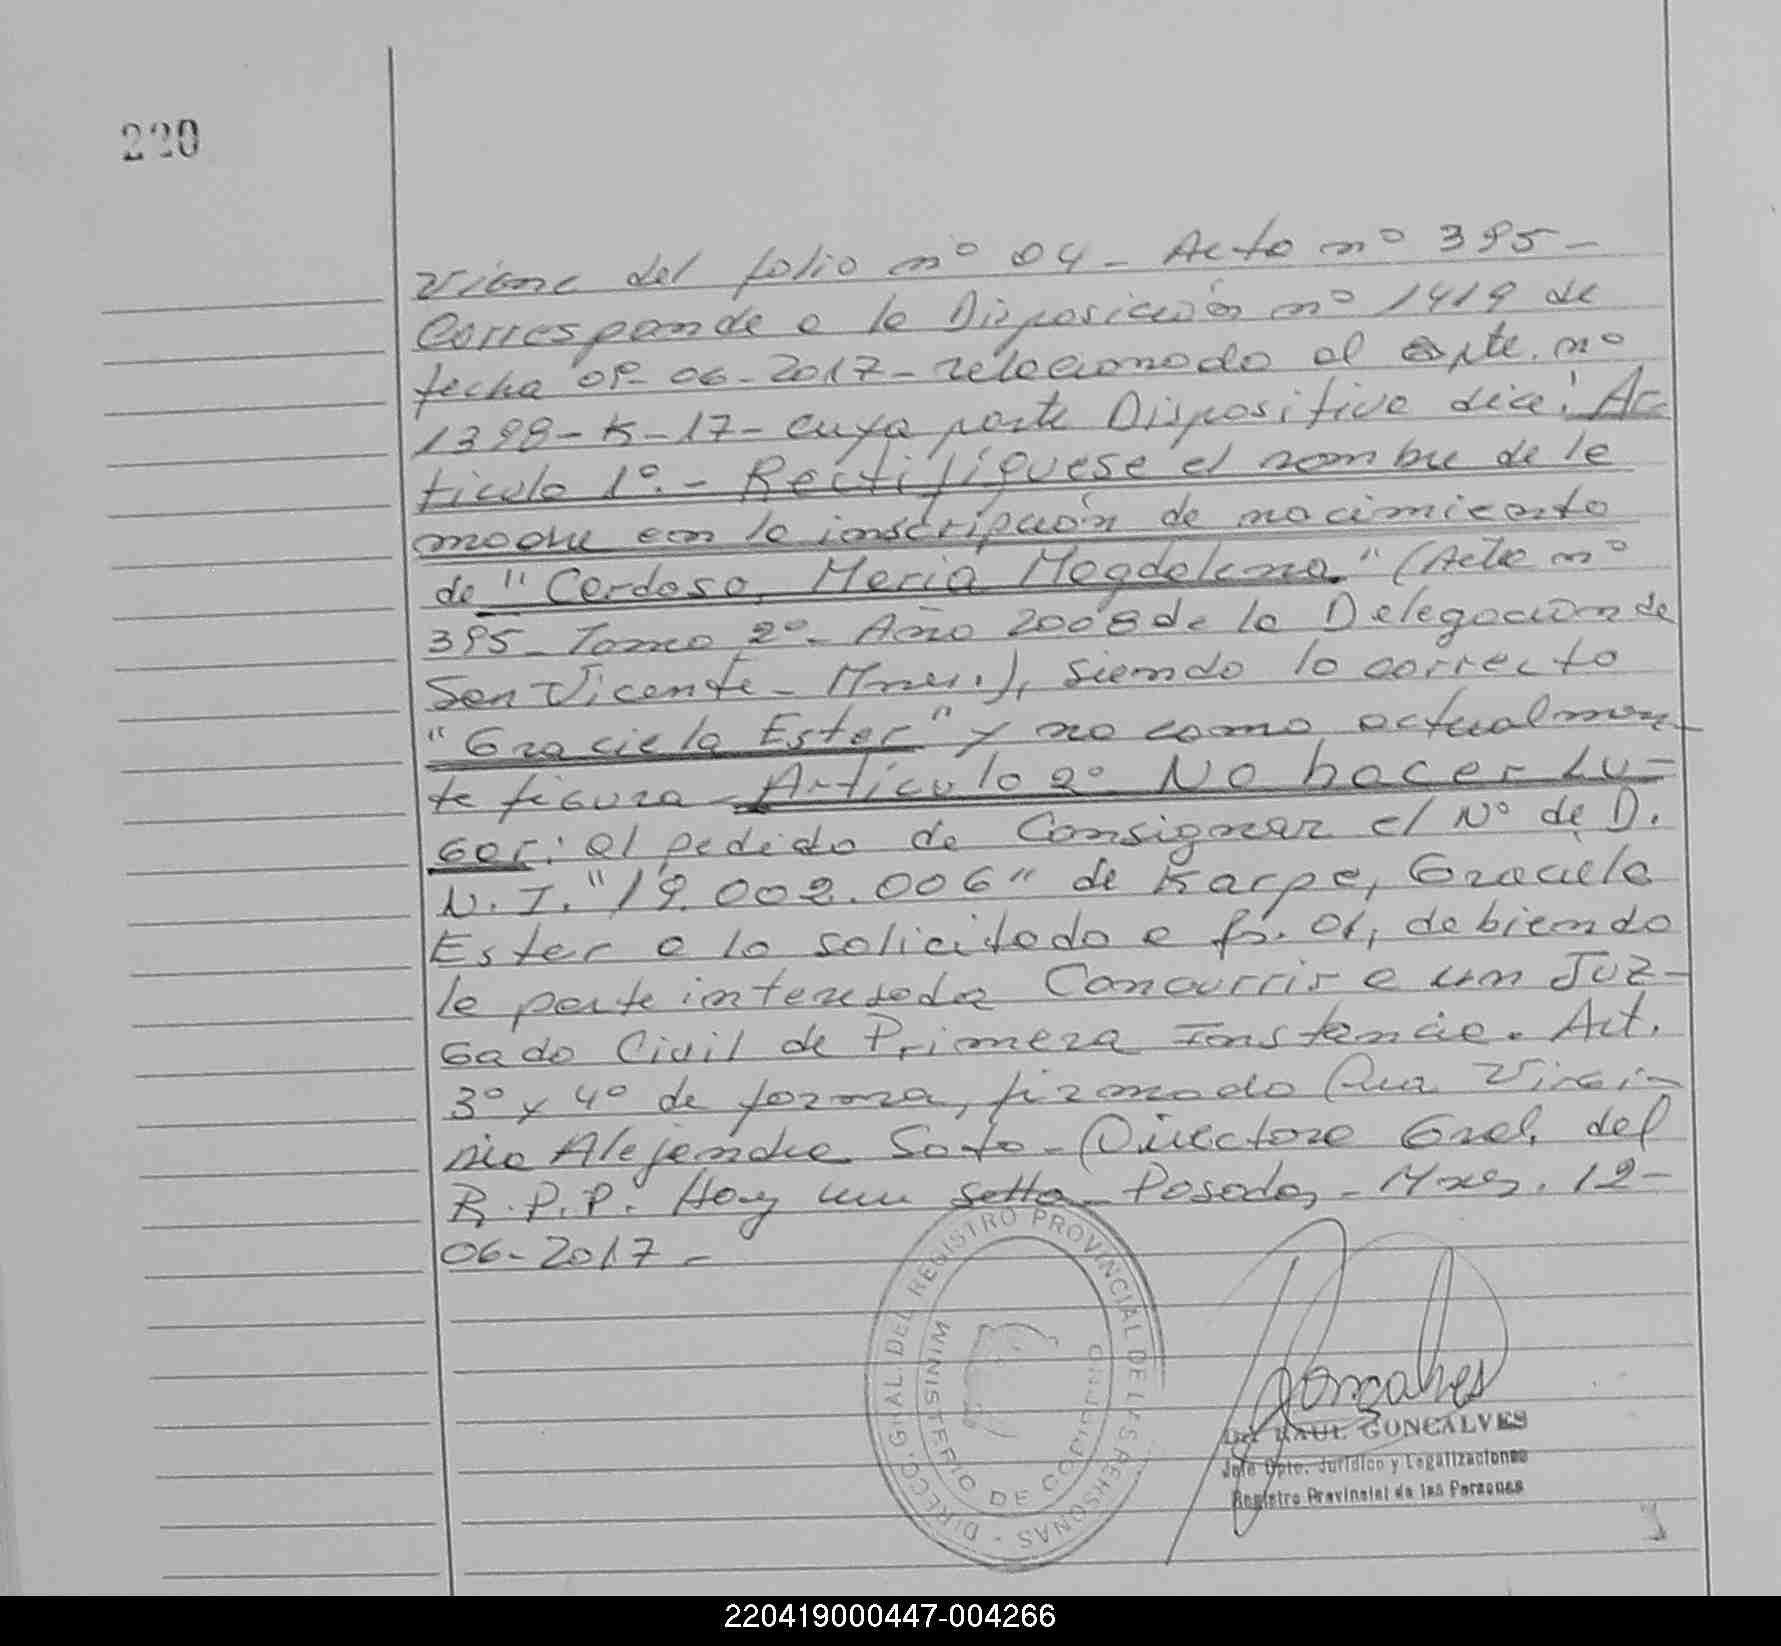 220
Viene del folio nº 04 - Acta nº 395 -
Corresponde a la Disposición nº 1419 de
fecha 09-06-2017 - relacionado al expte. nº
1398-K-17- cuya parte Dispositiva dice: Ar-
ticulo 1º.- Rectifíquese el nombre de la
madre en la inscripción de nacimiento
de "Cardoso, Maria Magdalena" (Acta nº
395 - Tomo 2º - Año 2008 de la Delegación de
San Vicente - Mnes.), siendo lo correcto
"Graciela Ester" y no como actualmen-
te figura - Articulo 2º No hacer Lu-
gar: al pedido de Consignar el Nº de D.
N.I. "19.002.006" de Karpe, Graciela
Ester a lo solicitado a fs. 01, debiendo
la parte interesada Concurrir a un Juz-
gado Civil de Primera Instancia. Art.
3º y 4º de forma, firmado Dra Virgi-
nia Alejandra Soto - Directora Gral. del
R.P.P. Hay un sello - Posadas - Mnes. 12-
06-2017 -
DIRECC. GRAL. DEL REGISTRO PROVINCIAL DE LAS PERSONAS -
MINISTERIO DE GOBIERNO
Goncalves
Dr. RAUL GONCALVES
Jefe Dpto. Jurídico y Legalizaciones
Registro Provincial de las Personas
220419000447-004266